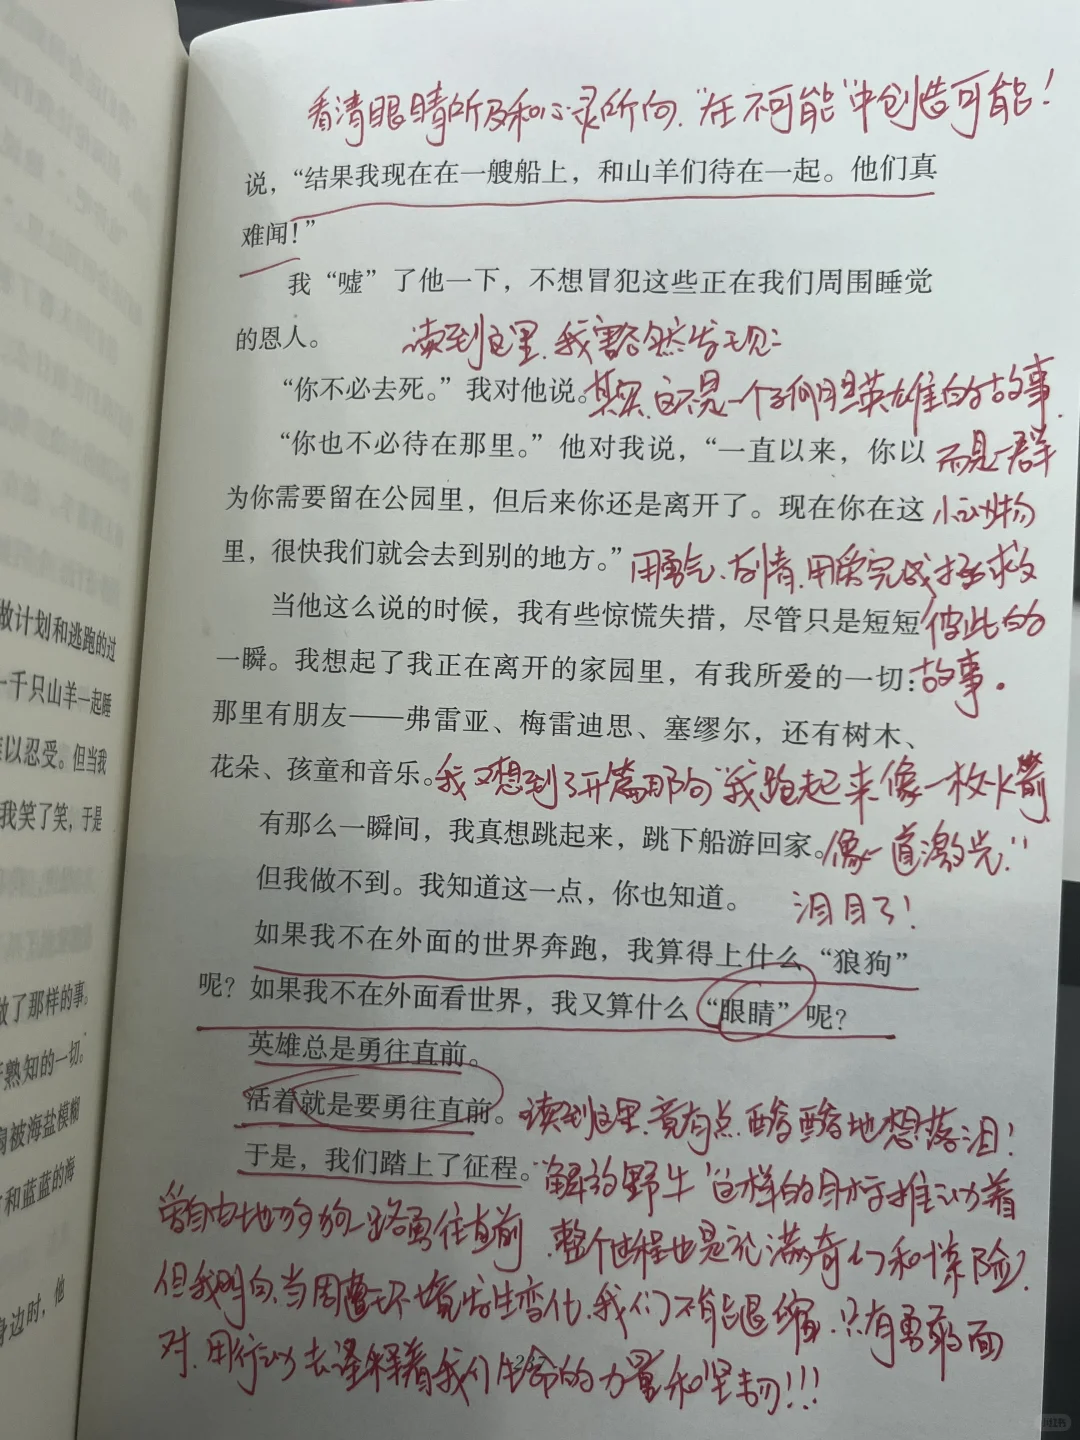 看清眼睛所及和心灵所向，“在不可能”中创造可能！
说，“结果我现在在一艘船上，和山羊们待在一起。他们真
难闻！”
我“嘘”了他一下，不想冒犯这些正在我们周围睡觉
的恩人。
读到这里，我豁然发现：
“你不必去死。”我对他说。
其实，这不是一个 英雄的故事，
“你也不必待在那里。”他对我说，“一直以来，你以
而是一群
为你需要留在公园里，但后来你还是离开了。现在你在这
小动物
里，很快我们就会去到别的地方。”
用勇气、友情、用爱完成拯救
当他这么说的时候，我有些惊慌失措，尽管只是短短
彼此的
一瞬。我想起了我正在离开的家园里，有我所爱的一切：
故事。
那里有朋友——弗雷亚、梅雷迪思、塞缪尔，还有树木、
花朵、孩童和音乐。
我又想到了开篇那句“我跑起来像一枚火箭，
有那么一瞬间，我真想跳起来，跳下船游回家。
像一道激光。”
但我做不到。我知道这一点，你也知道。
泪目了！
如果我不在外面的世界奔跑，我算得上什么“狼狗”
呢？如果我不在外面看世界，我又算什么“眼睛”呢？
英雄总是勇往直前。
活着就是要勇往直前。
读到这里，竟有点酸酸地想落泪！
于是，我们踏上了征程。
“解放野牛”这样的目标推动着
爱自由地狗狗一路勇往直前，整个过程也是充满奇幻和惊险，
但我明白，当周遭环境发生变化，我们不能退缩，只有勇敢面
对，用行动去诠释着我们生命的力量和坚韧！！！
做计划和逃跑的过
一千只山羊一起睡
以忍受。但当我
我笑了笑，于是
做了那样的事。
熟知的一切。
被海盐模糊
和蓝蓝的海
身边时，他